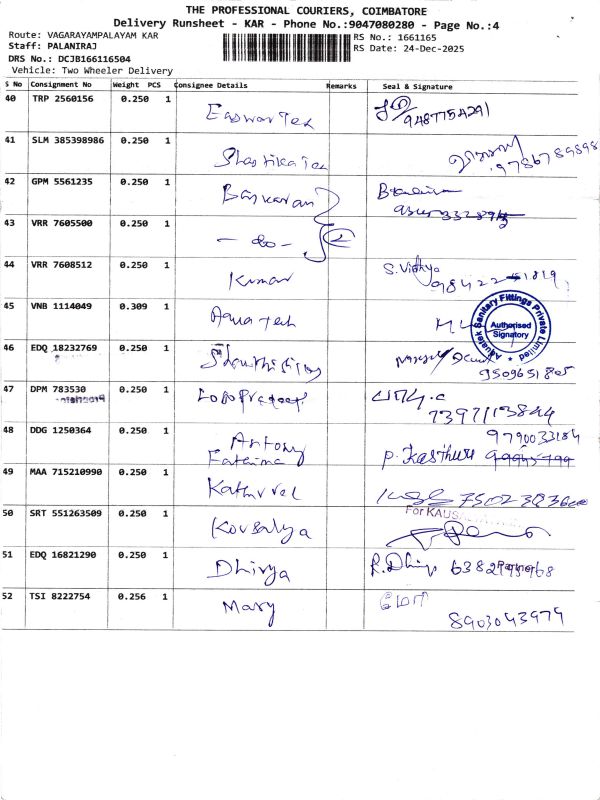 THE PROFESSIONAL COURIERS, COIMBATORE
Delivery Runsheet - KAR - Phone No.:9047080280 - Page No.:4
Route: VAGARAYAMPALAYAM KAR
RS No.: 1661165
Staff: PALANIRAJ
RS Date: 24-Dec-2025
DRS No.: DCJB166116504
Vehicle: Two Wheeler Delivery
S No Consignment No Weight PCS Consignee Details Remarks Seal & Signature
40 TRP 2560156 0.250 1 Easwar Tex
9487754291
41 SLM 385398986 0.250 1 Shastika Tex
9786789898
42 GPM 5561235 0.250 1 Baskaran
43 VRR 7605500 0.250 1 - do -
44 VRR 7608512 0.250 1 Kumar S. Vidhya
45 VNB 1114049 0.309 1 Aqua Tech
Aquatek Sanitary Fittings Private Limited
Authorised
Signatory
46 EDQ 18232769 0.250 1
47 DPM 783530 0.250 1
7397113844
48 DDG 1250364 0.250 1 Antony
Fathima
9790033184
P. Kasthuri
49 MAA 715210990 0.250 1 Kathirvel
50 SRT 551263509 0.250 1 Kousalya
For KAUS
51 EDQ 16821290 0.250 1 Dhivya
Partner
52 TSI 8222754 0.256 1 Mary மேரி
8903043979